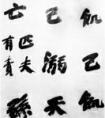 飢己飢
己溺天
亡匹夫
有責
孫